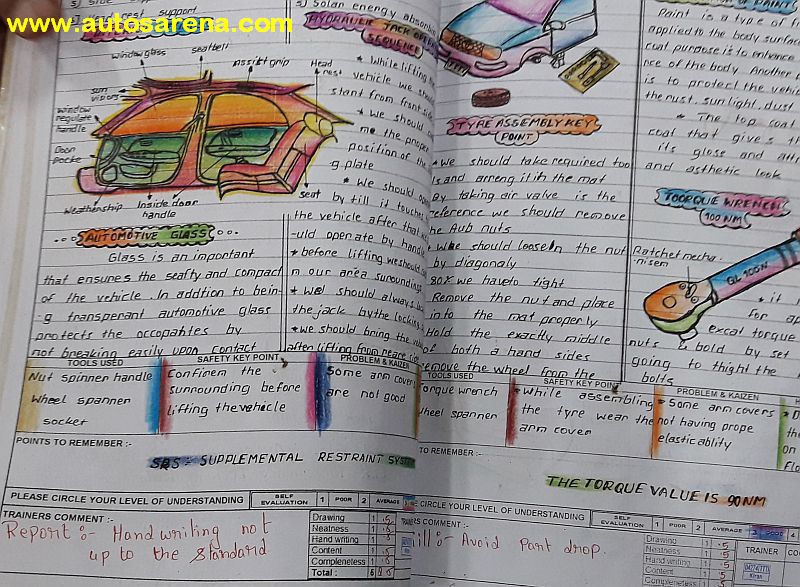 www.autosarena.com
support
windowglass
seatbelt
assist grip
Head
rest
sun
visors
window
regulate
handle
Door
pocke
weathership
Inside door
handle
seat
AUTOMOTIVE GLASS
Glass is an important
that ensures the seafty and compact
of the vehicle. In addtion to bein-
g transperant automotive glass
protects the occopahtes by
not breaking easily upon contact
5) Solar energy absorb
HYDRAULIC JACK OPER
SEQUENCE
* While lifting
vehicle we shou
stant from front side
* We should
me the prope
position of the
g.plate
* We should ope
by till it touches
the vehicle after that w
-uld operate by handle
* before lifting we should
n our area suroundings
* We should always
the jack by the locking
* we should bring the
after lifting from
TYRE ASSEMBLY KEY
POINT
* We should take required too
ls and arreng it in the mat
By taking air valve is the
reference we should remove
the Hub nuts
* We should loosen the nut
by diagonaly
80% we have to tight
Remove the nut and place
into the mat properly
Hold the exactly middle
of both a hand sides
remove the wheel from the
Paint is a type of
applied to the body surfac
coat purpose is to enhance
nce of the body. Another
is to protect the vehic
the rust, sunlight, dust
* The top coat
coat that gives th
its gloss and att
and asthetic look
TOORQUE WRENCH
100 NM
Ratchet mecha-
nisem
QL 100N
* it
for ap
excat torque
nuts & bold by set
going to thight the
bolts
TOOLS USED
SAFETY KEY POINT
PROBLEM & KAIZEN
Nut spinner handle
Wheel spanner
socket
Confirem the
surrounding before
lifting the vehicle
* Some arm covers
are not good
TOOLS USED
SAFETY KEY POINT
PROBLEM & KAIZEN
Torque wrench
wheel spanner
* While assembling
the tyre wear the
arm cover
* Some arm covers
not having prope
elastic ablity
POINTS TO REMEMBER :-
SRS :- SUPPLEMENTAL RESTRAINT SYSTEM
TO REMEMBER :-
THE TORQUE VALUE IS 90NM
PLEASE CIRCLE YOUR LEVEL OF UNDERSTANDING
SELF EVALUATION
1 POOR 2 AVERAGE
CIRCLE YOUR LEVEL OF UNDERSTANDING
SELF EVALUATION
1 POOR 2 AVERAGE 3 GOOD 4
TRAINERS COMMENT :-
Report :- Hand writing not
up to the standard
Drawing 1 .5
Neatness 1 .5
Hand writing 1 .5
Content 1 .5
Completeness 1 .5
Total : 6
COMMENT :-
:- Avoid Part drop.
Drawing 1
Neatness 1 .5
Hand writing 1 .5
Content 1 .5
Completeness 1 .5
TRAINER